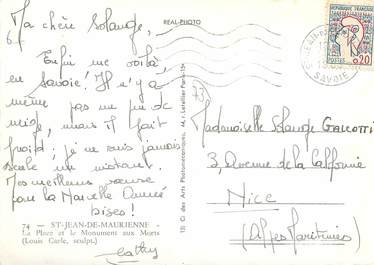 Ma chère Solange,
Enfin me voilà,
en Savoie! Il n'y a
même pas un peu de
neige, mais il fait
froid; je ne suis jamais
seule un instant.
Mes meilleurs vœux
pour la Nouvelle Année
bises!
Cathy
74 - ST-JEAN-DE-MAURIENNE -
La Place et le Monument aux Morts
(Louis Carle, sculpt.)
REAL-PHOTO
13) Cl des Arts Photomécaniques, 44, r. Letellier Paris-15e
73
REPUBLIQUE FRANÇAISE
POSTES 0,20
SAVOIE
Mademoiselle Solange GALLOTTI
3, Avenue de la Californie
Nice
(Alpes Maritimes)